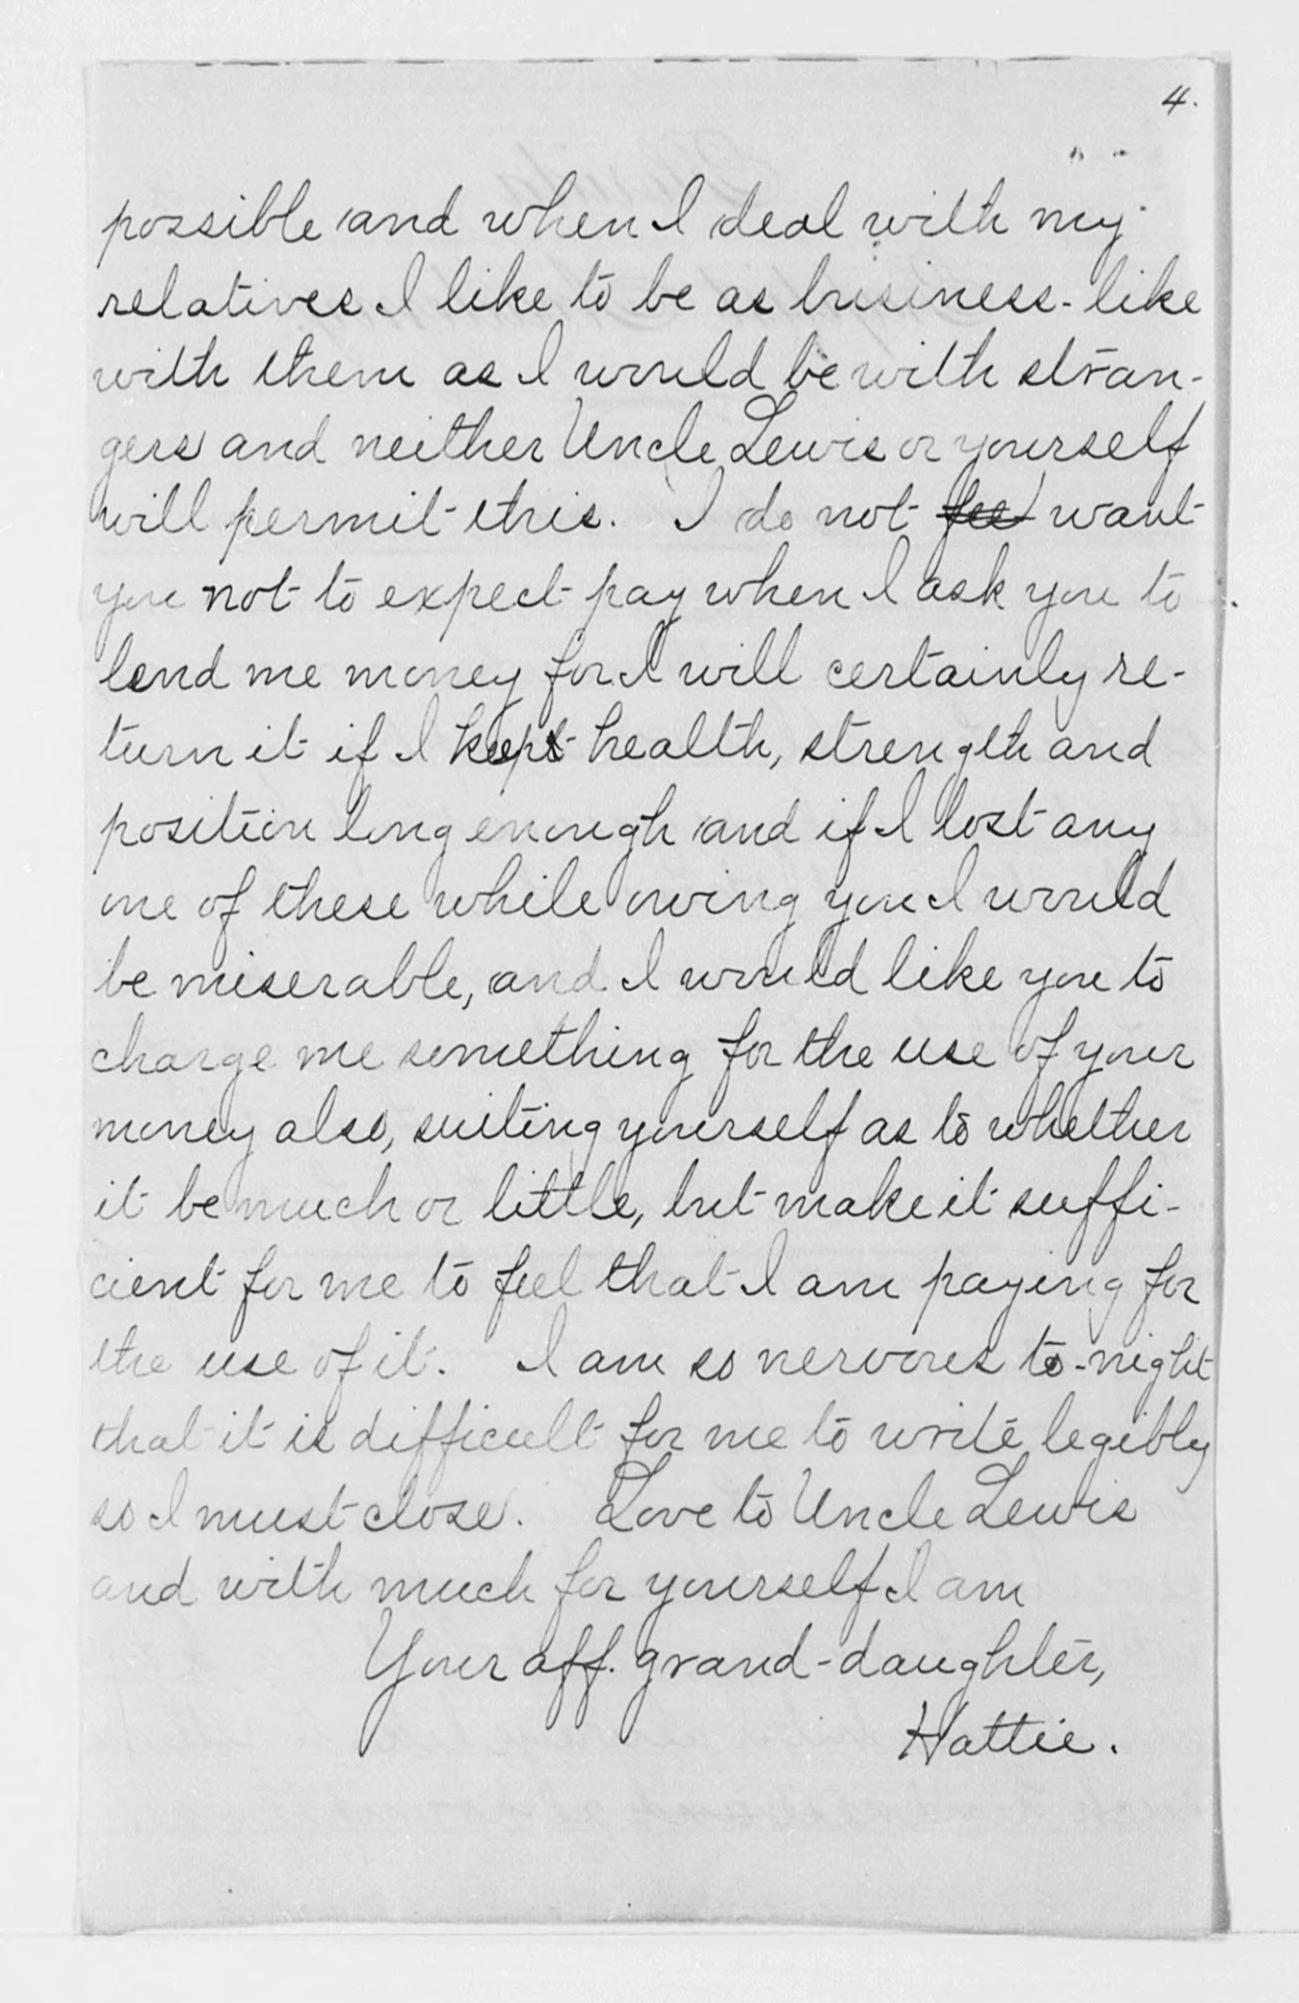 4.
possible and when I deal with my
relatives I like to be as business-like
with them as I would be with stran-
gers and neither Uncle Lewis or yourself
will permit this. I do not fee want
you not to expect pay when I ask you to
lend me money for I will certainly re-
turn it if I kept health, strength and
position long enough and if I lost any
one of these while owing you I would
be miserable, and I would like you to
charge me something for the use of your
money also, suiting yourself as to whether
it be much or little, but make it suffi-
cient for me to feel that I am paying for
the use of it. I am so nervous to-night
that it is difficult for me to write legibly
so I must close. Love to Uncle Lewis
and with much for yourself I am
Your aff. grand-daughter,
Hattie.